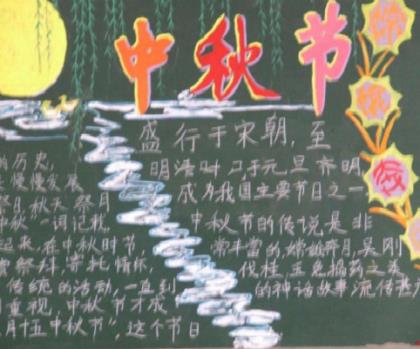 中秋节
盛行于宋朝,至
的历史,
慢慢发展
明清时,与元旦齐明
祭月,秋天祭月
成为我国主要节日之一
中秋一词记载
中秋节的传说是非
起来,在中秋时节
常丰富的,嫦娥奔月,吴刚
祭拜,寄托情怀
伐桂,玉兔捣药之类
传统的活动,一直到
的神话故事流传甚
重视,中秋节才成
月十五中秋节",这个节日